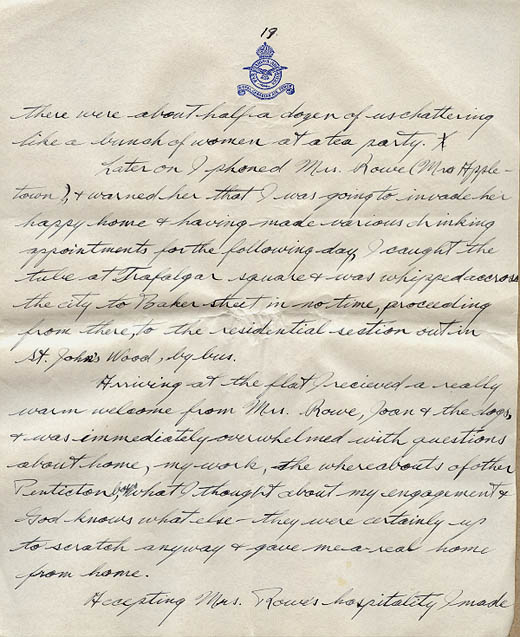 19
there were about half-a dozen of us chattering
like a bunch of women at a tea party. X
Later on I phoned Mrs. Rowe (Mrs Apple-
town), & warned her that I was going to invade her
happy home & having made various drinking
appointments for the following day, I caught the
tube at Trafalgar square & was whipped accross
the city to Baker street in no time, proceeding
from there, to the residential section out in
St. John's Wood, by bus.
Arriving at the flat I recieved a really
warm welcome from Mrs. Rowe, Joan & the dogs,
& was immediately overwhelmed with questions
about home, my work, the whereabouts of other
Penticton boys, what I thought about my engagement &
God knows what else - they were certainly up
to scratch anyway & gave me a real home
from home.
Accepting Mrs. Rowe's hospitality I made